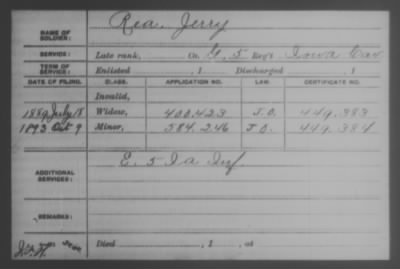 NAME OF SOLDIER: Rea, Jerry
SERVICE: Late rank, Co. G, 5 Reg't Iowa Cav
TERM OF SERVICE: Enlisted , 1 Discharged , 1
DATE OF FILING. CLASS. APPLICATION NO. LAW. CERTIFICATE NO.
Invalid,
1889 July 18 Widow, 400.423 J.O. 449.383
1893 Oct 9 Minor, 584.246 J.O. 449.384
ADDITIONAL SERVICES: E. 5 Ia Inf.
REMARKS:
Died , 1 , at